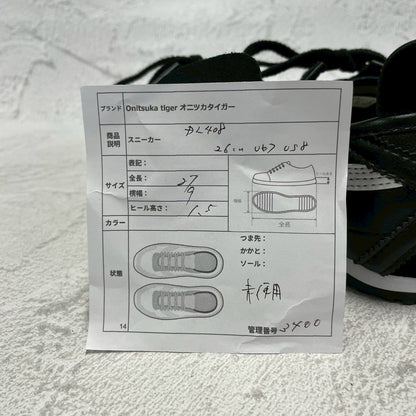 ブランド Onitsuka tiger オニツカタイガー
商品説明 スニーカー DL408
26cm UK7 US8
サイズ
表記：
全長： 27
横幅： 9
ヒール高さ： 1.5
横幅
全長
カラー
状態
つま先：
かかと：
ソール：
未使用
14
管理番号 3400